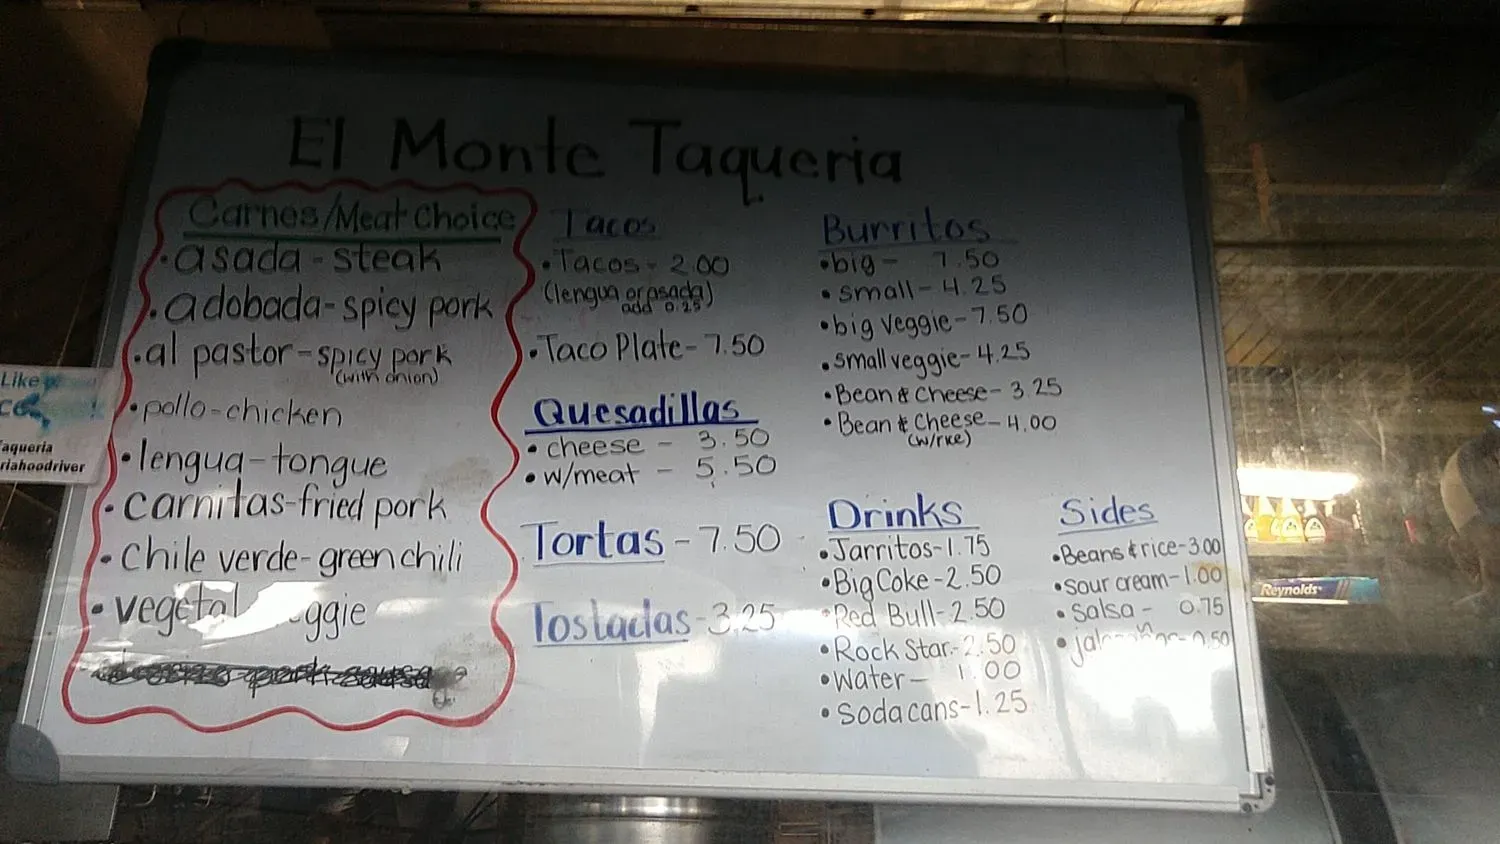 El Monte Taqueria
Carnes/Meat Choice
• asada - steak
• adobada - spicy pork
• al pastor - spicy pork
(with onion)
• pollo - chicken
• lengua - tongue
• carnitas - fried pork
• Chile verde - green chili
• vegetal
Tacos
• Tacos - 2.00
(lengua or asada)
add 0.25
• Taco Plate - 7.50
Quesadillas
• cheese - 3.50
• w/meat - 5.50
Tortas - 7.50
Tostadas - 3.25
Burritos
• big - 7.50
• small - 4.25
• big veggie - 7.50
• small veggie - 4.25
• Bean & Cheese - 3.25
• Bean & Cheese - 4.00
(w/rice)
Drinks
• Jarritos - 1.75
• Big Coke - 2.50
• Red Bull - 2.50
• Rock Star - 2.50
• Water - 1.00
• Soda cans - 1.25
Sides
• Beans & rice - 3.00
• Sour cream - 1.00
• Salsa - 0.75
0.50
Like
aqueria
riahoodriver
Reynolds